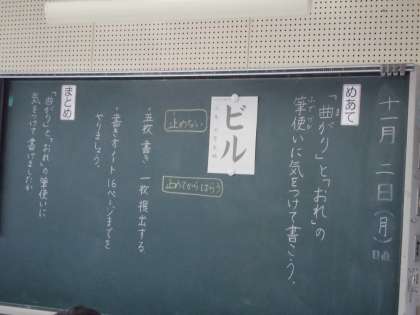 十一月二日(月)
めあて
「曲がり」と「おれ」の
筆使いに気をつけて書こう。
ビル
止めない
止めてからはらう
・五枚書き一枚提出する。
・書きオイト16ページまでを
やりましょう。
まとめ
「曲がり」と「おれ」の筆使いに
気をつけて書けましたか